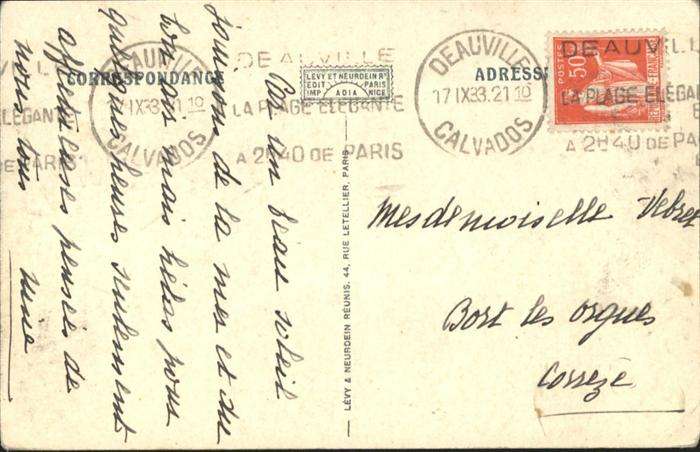 CORRESPONDANCE
ADRESSE
LÉVY ET NEURDEIN Rs
EDIT PARIS
IMP ADIA NICE
DEAUVILLE
17 IX 33. 21 10
CALVADOS
DEAUVILLE
LA PLAGE ELEGANTE
A 2H40 DE PARIS
DEAUVILLE
17 IX 33. 21 10
CALVADOS
POSTES
50c
DEAUVILL
LA PLAGE ELEGAN
A 2H40 DE PAR
Par un beau soleil
jouissons de la mer et du
bon air mais hélas pour
quelques heures seulement
affectueuses pensées de
nous tous
LÉVY & NEURDEIN RÉUNIS. 44, RUE LETELLIER, PARIS
Mesdemoiselle
Bort les orgues
Corrèze